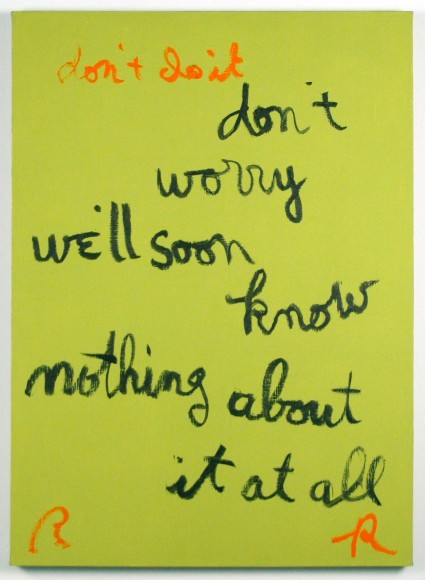 don't do it
don't
worry
we'll soon
know
nothing about
it at all
R R